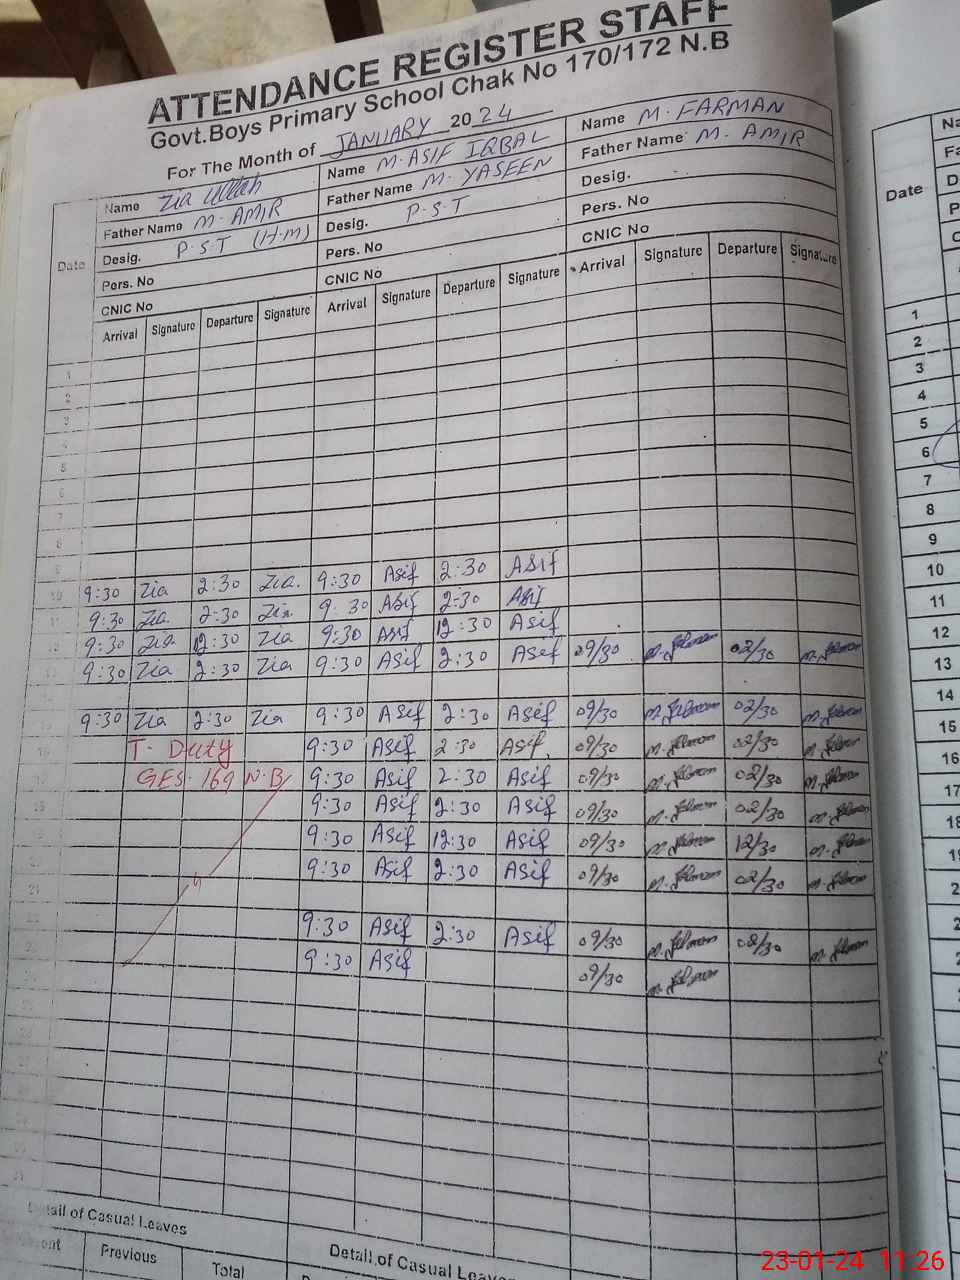 ATTENDANCE REGISTER STAFF
Govt.Boys Primary School Chak No 170/172 N.B
For The Month of JANUARY 2024
Date
Name Zia Ullah Name M. ASIF IQBAL Name M. FARMAN
Father Name M. AMIR Father Name M. YASEEN Father Name M. AMIR
Desig. P.S.T (H.M) Desig. P.S.T Desig.
Pers. No Pers. No Pers. No
CNIC No CNIC No CNIC No
Arrival Signature Departure Signature Arrival Signature Departure Signature Arrival Signature Departure Signature
1
2
3
4
5
6
7
8
9
10 9:30 Zia 2:30 Zia. 9:30 Asif 2:30 Asif
11 9:30 Zia. 2:30 Zia 9:30 Asif 2:30 Asif
12 9:30 Zia 12:30 Zia 9:30 Asif 12:30 Asif
13 9:30 Zia 2:30 Zia 9:30 Asif 2:30 Asif 09/30 02/30
15 9:30 Zia 2:30 Zia 9:30 Asif 2:30 Asif 09/30 02/30
16 T. Duty 9:30 Asif 2:30 Asif 09/30 02/30
17 GES. 169 N.B 9:30 Asif 2:30 Asif 09/30 02/30
18 9:30 Asif 2:30 Asif 09/30 02/30
9:30 Asif 12:30 Asif 09/30 12/30
9:30 Asif 2:30 Asif 09/30 02/30
21
22 9:30 Asif 2:30 Asif 09/30 02/30
23 9:30 Asif 09/30
Detail of Casual Leaves
Previous
Total
Detail of Casual Leaves
Date
1
2
3
4
5
6
7
8
9
10
11
12
13
14
15
16
17
18
23-01-24 11:26